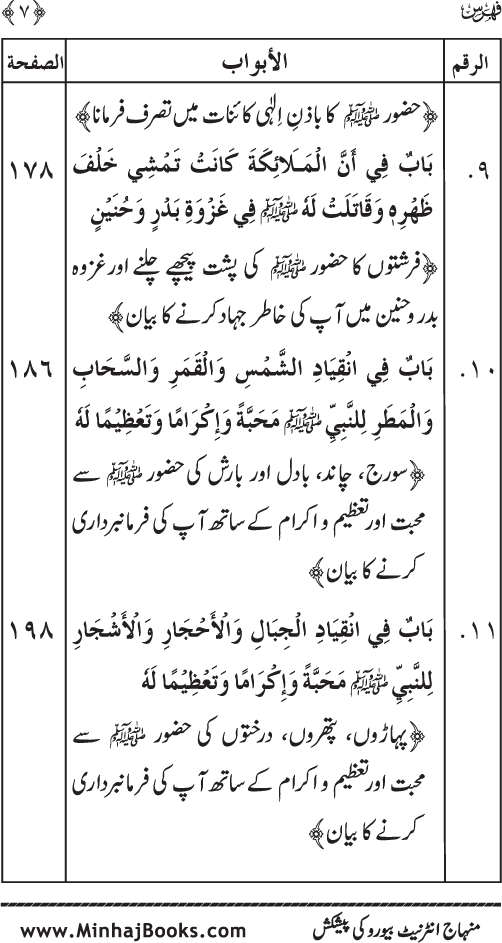 فہرس ﴿٧﴾
الرقم الأبواب الصفحة
﴿حضور ﷺ کا باذنِ اِلٰہی کائنات میں تصرف فرمانا﴾
٩. بَابٌ فِي أَنَّ الْمَلَائِكَةَ كَانَتْ تَمْشِي خَلْفَ ١٧٨
ظَهْرِهٖ وَقَاتَلَتْ لَهٗ ﷺ فِي غَزْوَةِ بَدْرٍ وَحُنَيْنٍ
﴿فرشتوں کا حضور ﷺ کی پشت پیچھے چلنے اور غزوہ
بدر و حنین میں آپ کی خاطر جہاد کرنے کا بیان﴾
١٠. بَابٌ فِي انْقِيَادِ الشَّمْسِ وَالْقَمَرِ وَالسَّحَابِ ١٨٦
وَالْمَطَرِ لِلنَّبِيِّ ﷺ مَحَبَّةً وَإِكْرَامًا وَتَعْظِيْمًا لَهٗ
﴿سورج، چاند، بادل اور بارش کی حضور ﷺ سے
محبت اور تعظیم و اکرام کے ساتھ آپ کی فرمانبرداری
کرنے کا بیان﴾
١١. بَابٌ فِي انْقِيَادِ الْجِبَالِ وَالْأَحْجَارِ وَالْأَشْجَارِ ١٩٨
لِلنَّبِيِّ ﷺ مَحَبَّةً وَإِكْرَامًا وَتَعْظِيْمًا لَهٗ
﴿پہاڑوں، پتھروں، درختوں کی حضور ﷺ سے
محبت اور تعظیم و اکرام کے ساتھ آپ کی فرمانبرداری
کرنے کا بیان﴾
منہاج انٹرنیٹ بیورو کی پیشکش www.MinhajBooks.com